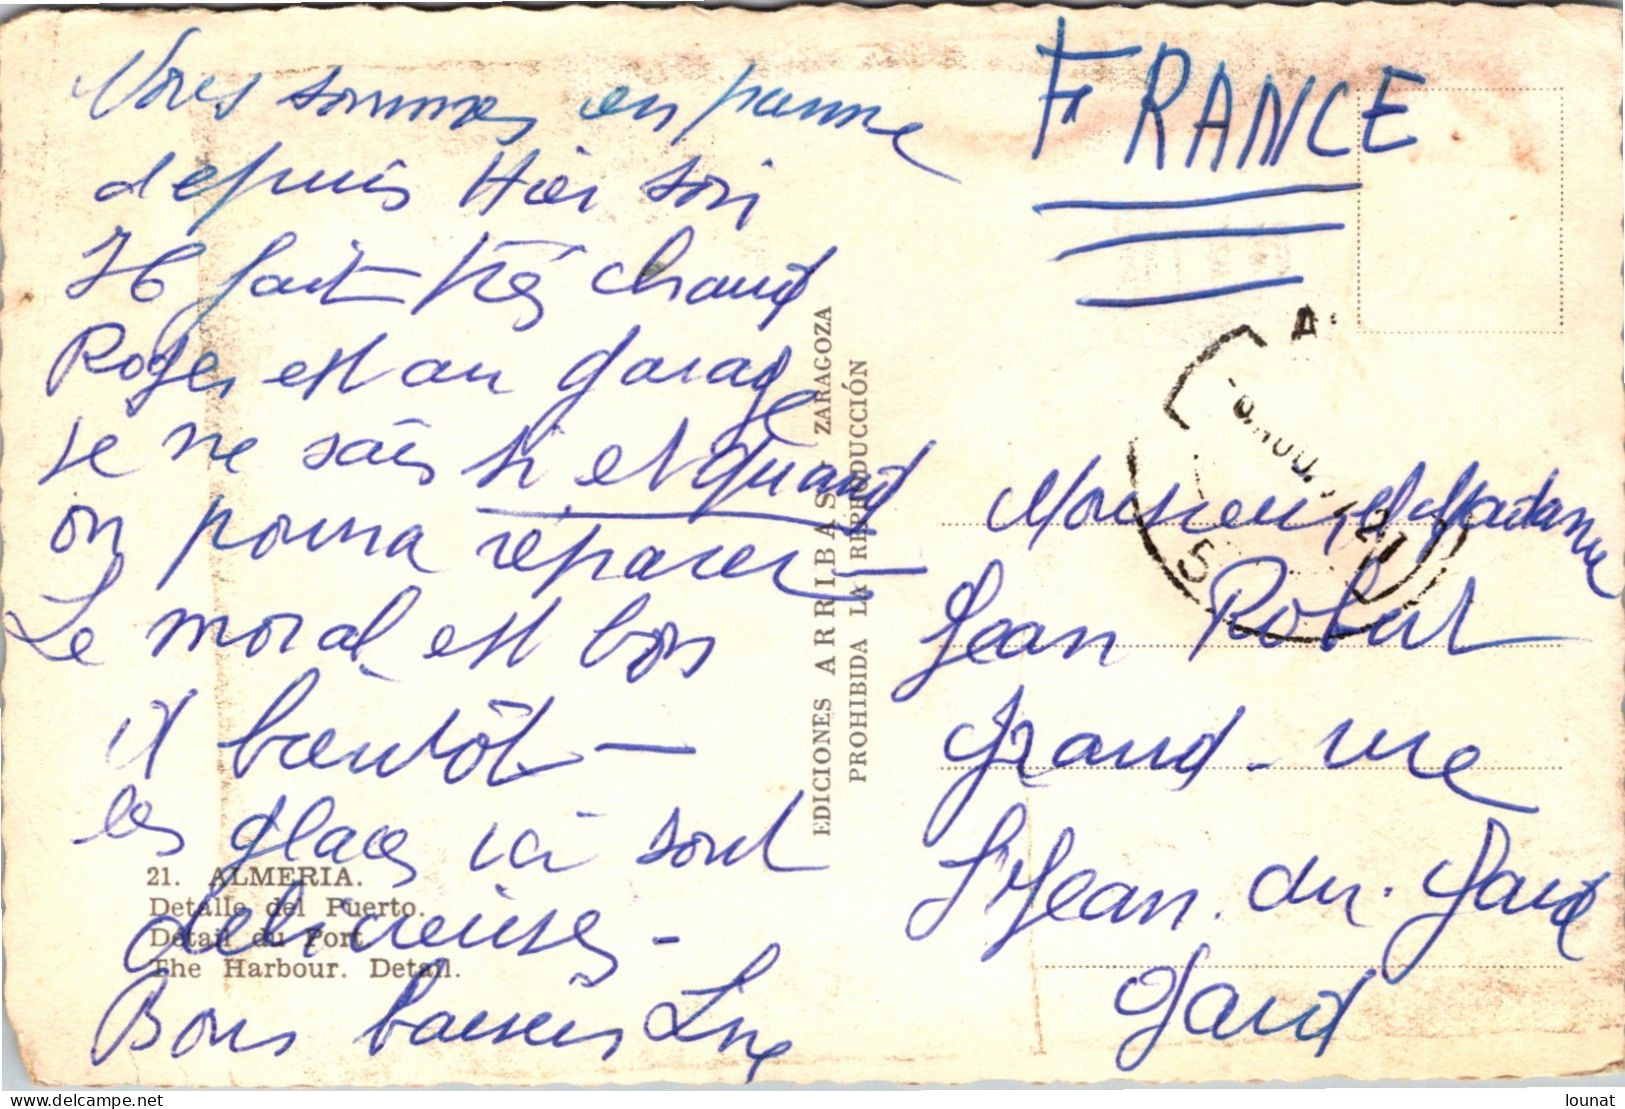 Nous sommes en panne
depuis Hier soir
Il fait très chaud
Roger est au garage
Je ne sais si et quand
on pourra réparer —
Le moral est bon
et bientôt —
les glaces ici sont
delicieuses -
Bons baisers Line
21. ALMERIA.
Detalle del Puerto.
Détail du Port
The Harbour. Detail.
EDICIONES ARRIBAS - ZARAGOZA
PROHIBIDA LA REPRODUCCIÓN
FRANCE
Monsieur et Madame
Jean Robert
Grand-rue
St Jean. du. Gard
Gard
delcampe.net
lounat